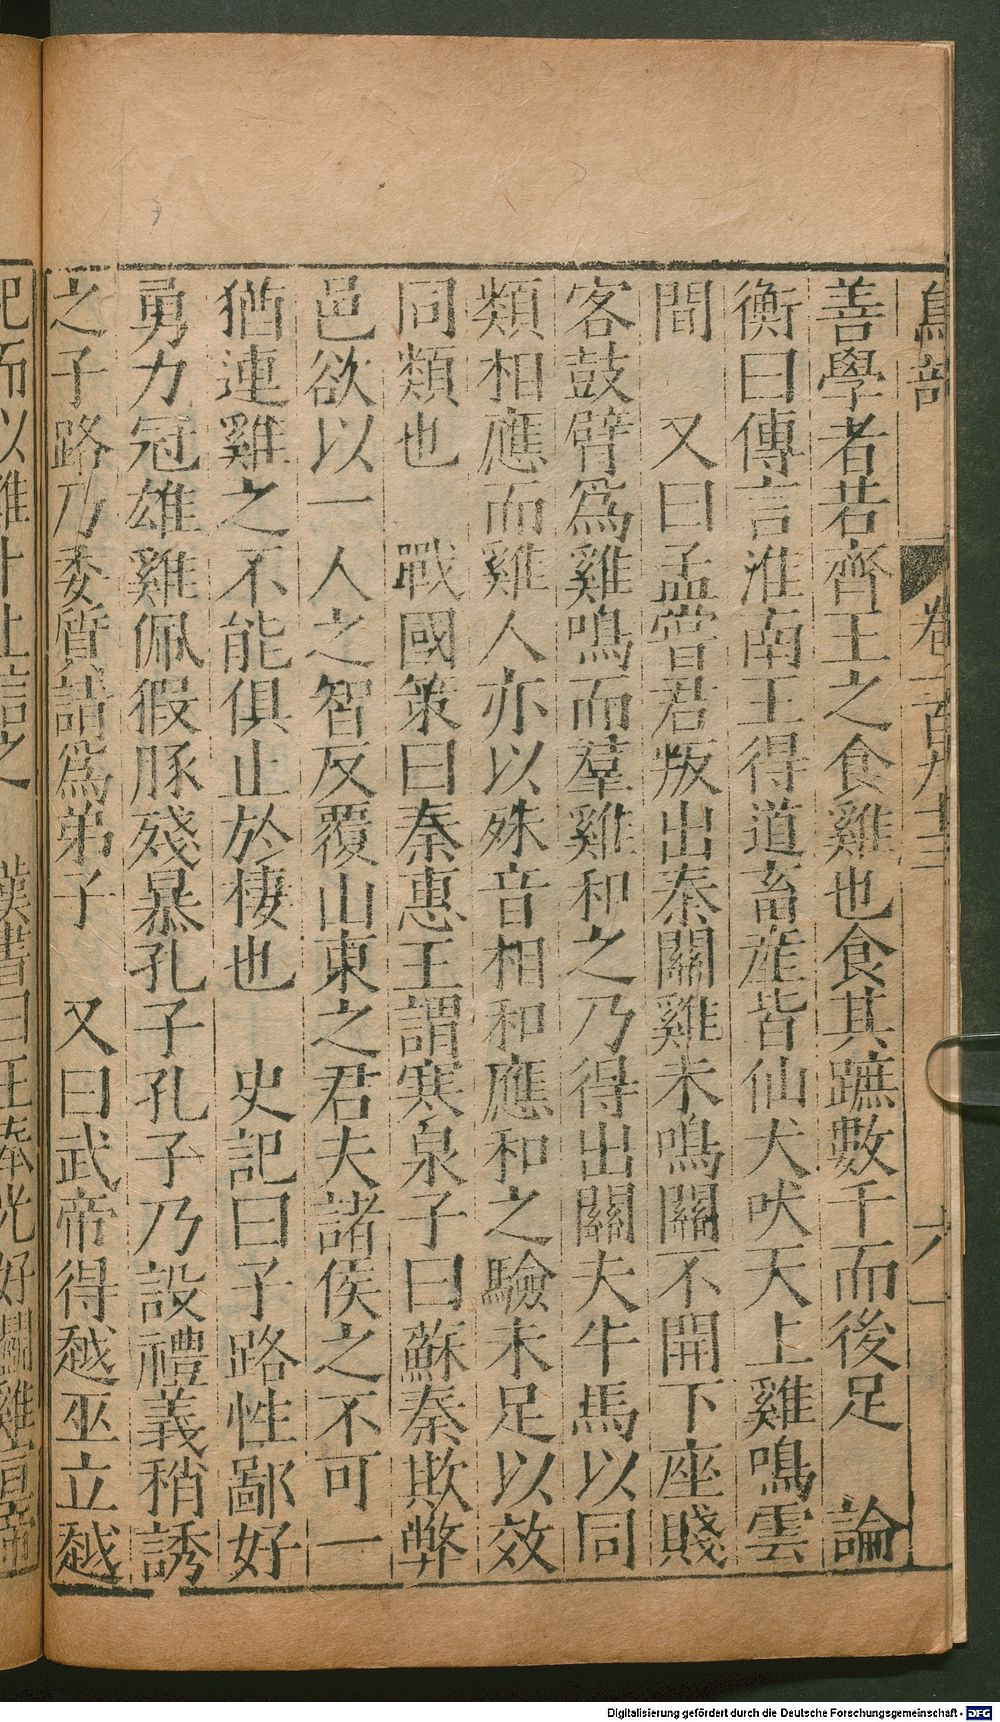 鳥部 卷一百九十三 六
善學者若齊王之食雞也食其蹠數千而後足 論
衡曰傳言淮南王得道畜産皆仙犬吠天上雞鳴雲
間 又曰孟嘗君叛出秦關雞未鳴關不開下座賤
客鼓臂爲雞鳴而羣雞和之乃得出關夫牛馬以同
類相應而雞人亦以殊音相和應和之驗未足以效
同類也 戰國策曰秦惠王謂寒泉子曰蘇秦欺弊
邑欲以一人之智反覆山東之君夫諸侯之不可一
猶連雞之不能俱止於棲也 史記曰子路性鄙好
勇力冠雄雞佩猳豚殘暴孔子孔子乃設禮義稍誘
之子路乃委質請爲弟子 又曰武帝得越巫立越
祀而以雞卜上信之 漢書曰王奉光好鬭雞宣帝
Digitalisierung gefördert durch die Deutsche Forschungsgemeinschaft - DFG